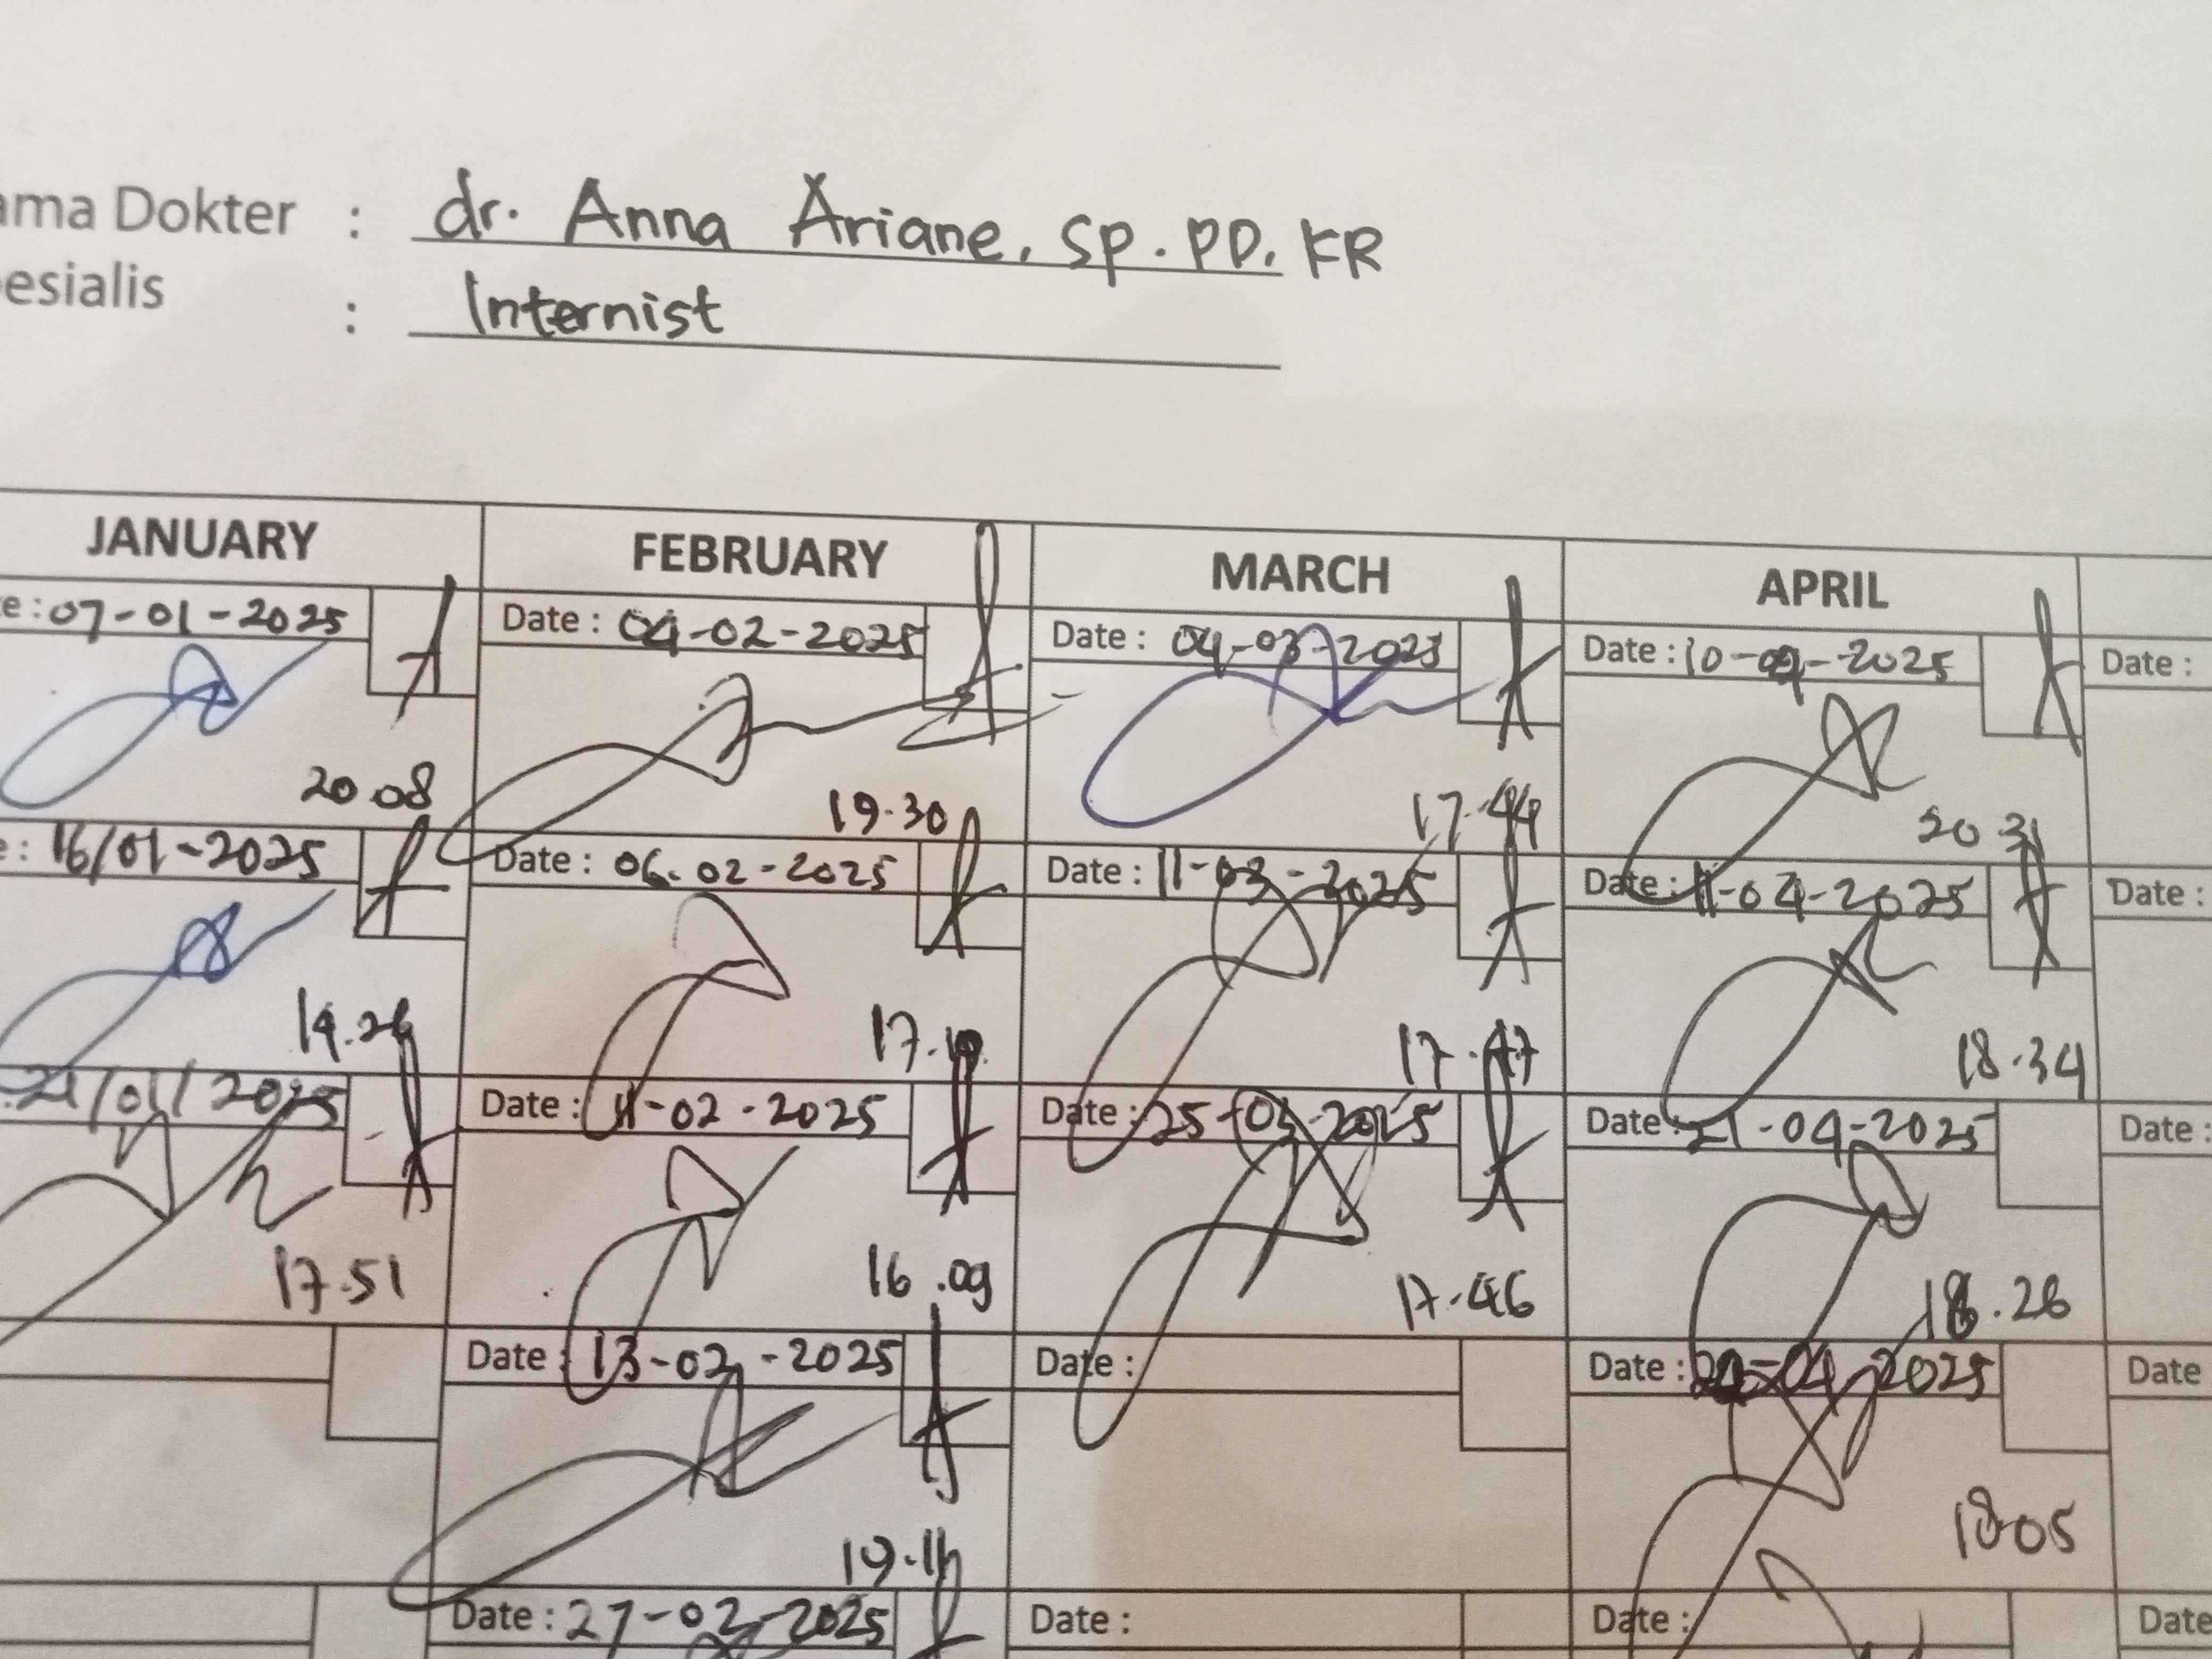 ama Dokter : dr. Anna Ariane, Sp.PD, KR
esialis : Internist
JANUARY FEBRUARY MARCH APRIL
e : 07-01-2025 Date : 04-02-2025 Date : 04-03-2025 Date : 10-04-2025 Date :
20.08 19.30 17.44 20 31
e : 16/01-2025 Date : 06-02-2025 Date : 11-03-2025 Date : 11-04-2025 Date :
17.47 18.34
21/01/2025 Date : 11-02-2025 Date : 25-03-2025 Date : 21-04-2025 Date :
17.51 16.09 17.46 18.26
Date : 13-02-2025 Date : Date : 2025 Date
19.11 18.05
Date : 27-02-2025 Date : Date : Date